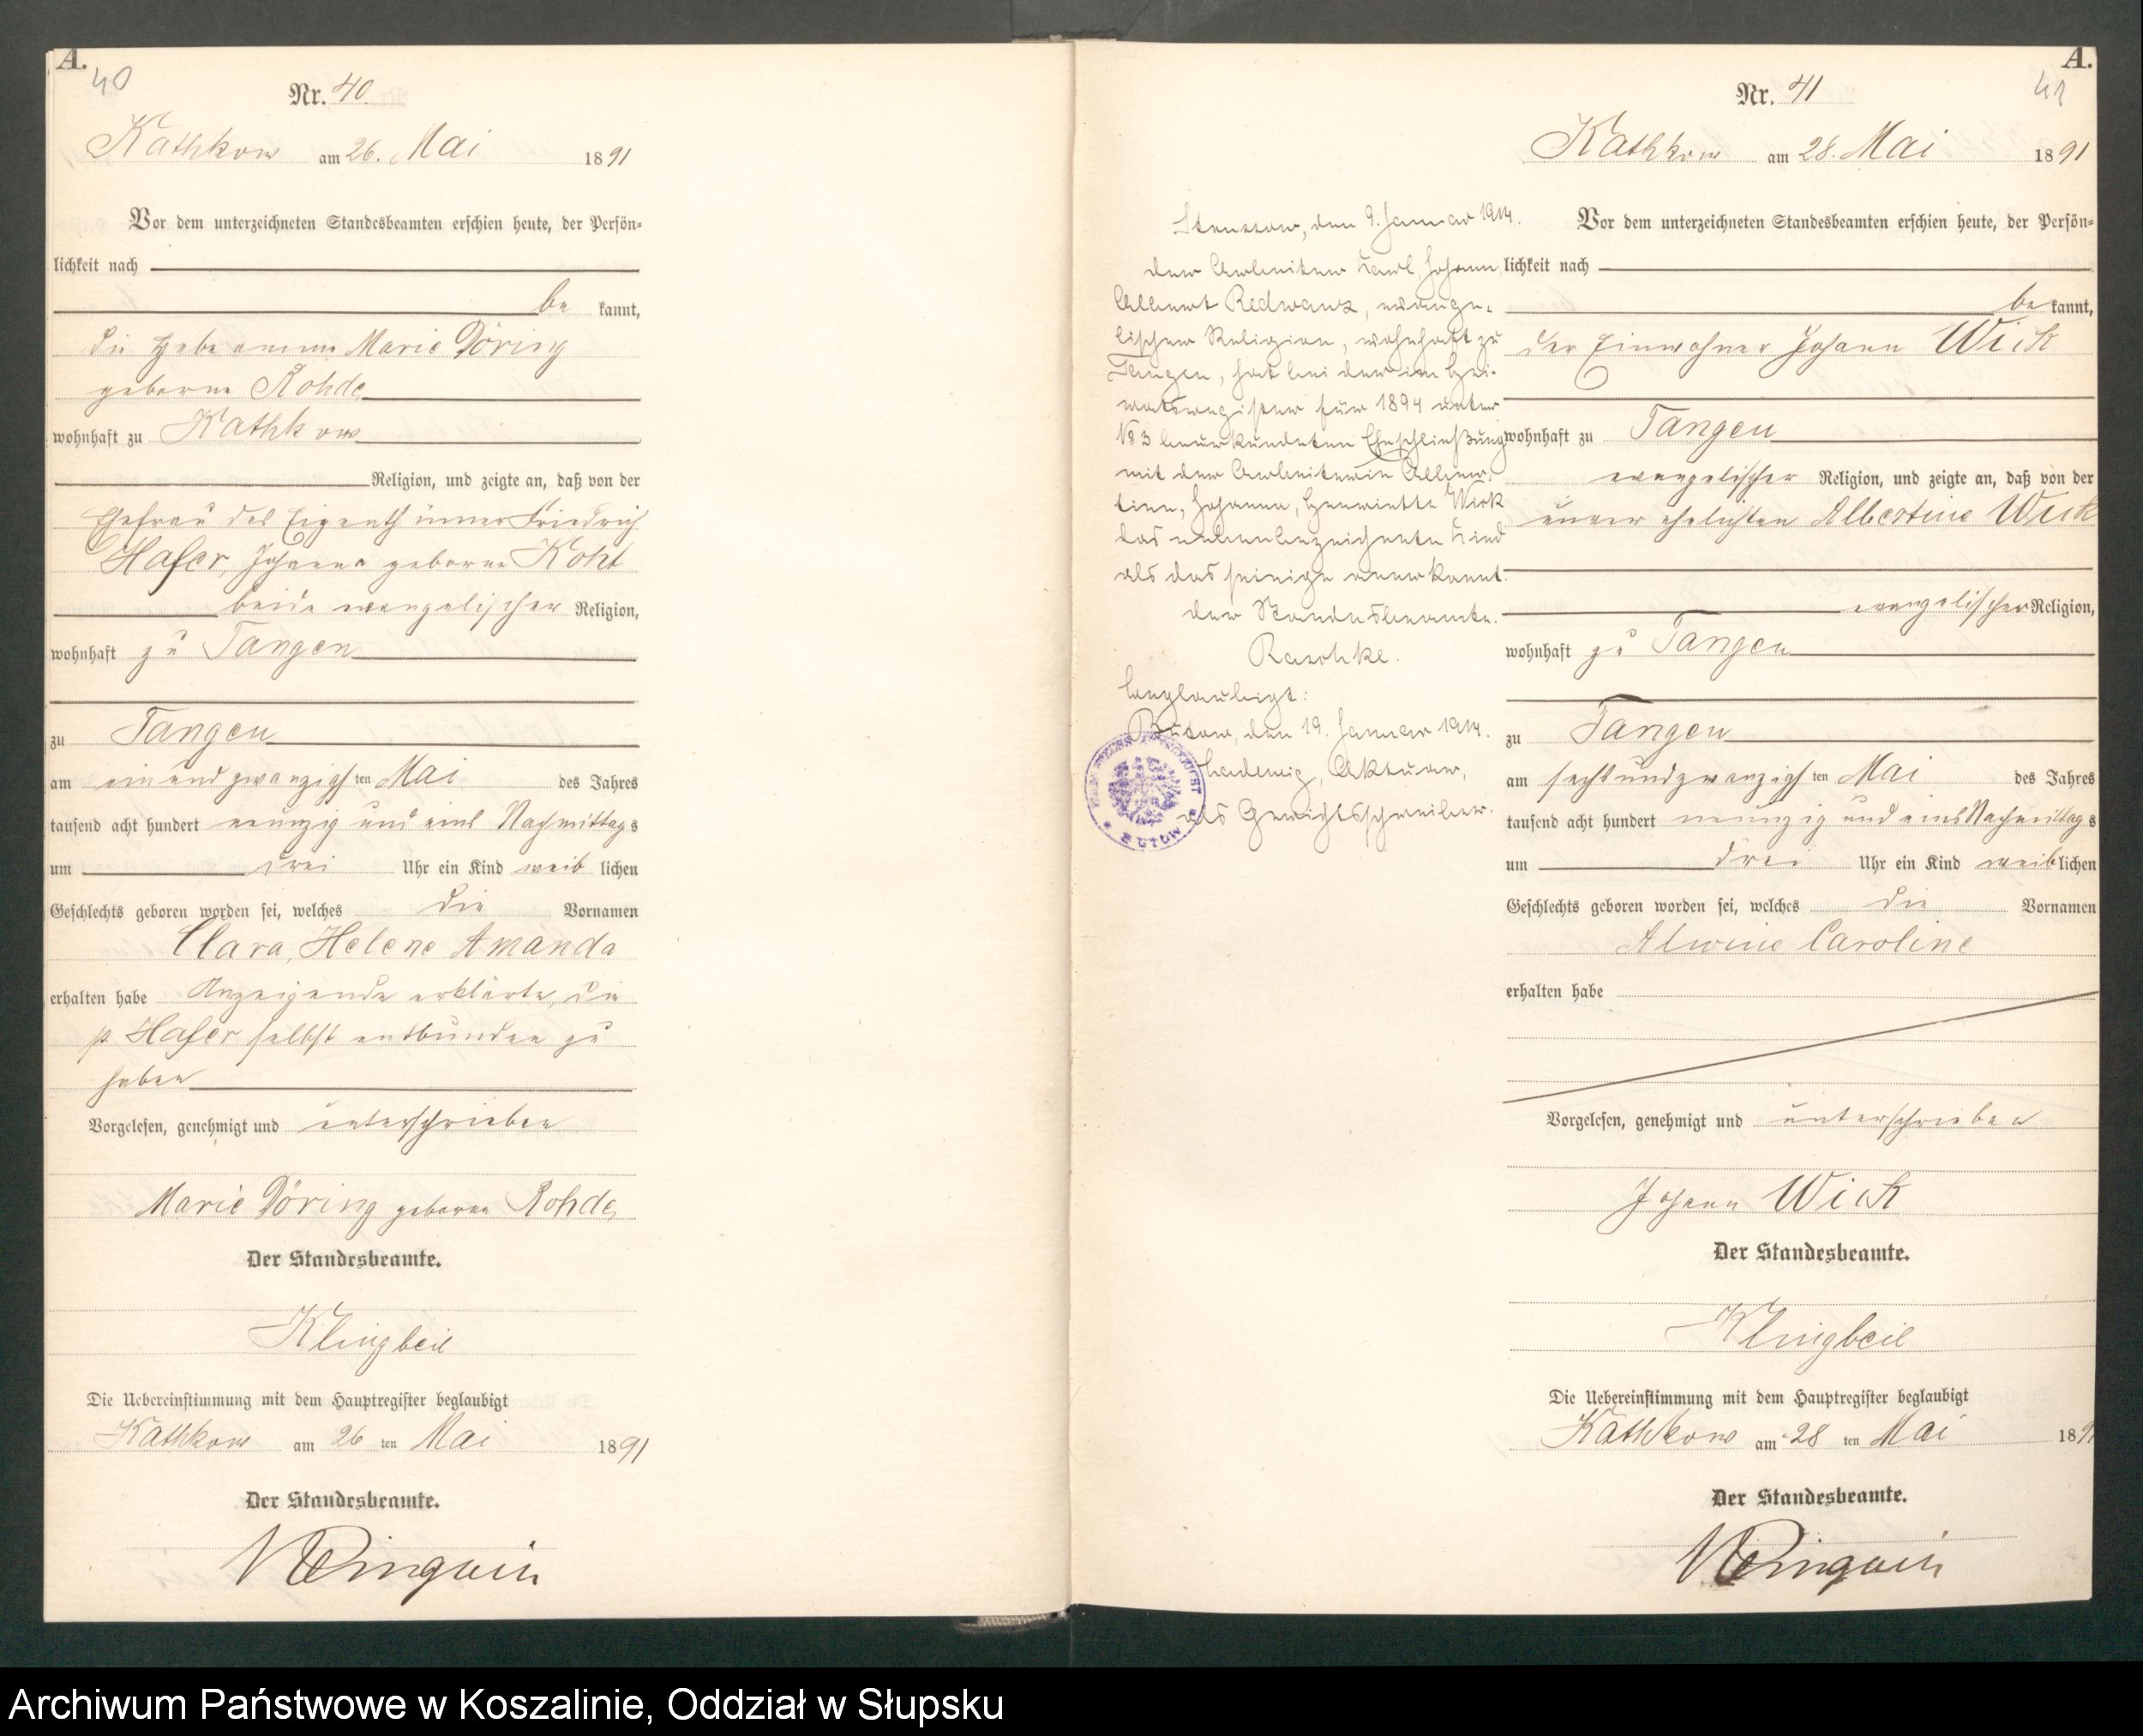 A.
40
Nr. 40.
Kathkow am 26. Mai 1891
Vor dem unterzeichneten Standesbeamten erschien heute, der Persön-
lichkeit nach
be kannt,
die Hebeamme Marie Döring
geborne Rohde
wohnhaft zu Kathkow
Religion, und zeigte an, daß von der
Ehefrau des Eigenthümer Friedrich
Hafer, Johanna geborne Koht
beide evangelischer Religion,
wohnhaft zu Tangen
zu Tangen
am einundzwanzigsten Mai des Jahres
tausend acht hundert neunzig und eins Nachmittags
um drei Uhr ein Kind weiblichen
Geschlechts geboren worden sei, welches die Vornamen
Clara, Helene Amanda
erhalten habe Anzeigende erklärte, die
p. Hafer selbst entbunden zu
haben
Vorgelesen, genehmigt und unterschrieben
Marie Döring geborne Rohde
Der Standesbeamte.
Klingbeil
Die Uebereinstimmung mit dem Hauptregister beglaubigt
Kathkow am 26 ten Mai 1891
Der Standesbeamte.
A.
41
Nr. 41
Kathkow am 28. Mai 1891
Vor dem unterzeichneten Standesbeamten erschien heute, der Persön-
lichkeit nach
be kannt,
der Einwohner Johann Wick
wohnhaft zu Tangen
evangelischer Religion, und zeigte an, daß von der
unverehelichten Albertine Wick
evangelischer Religion,
wohnhaft zu Tangen
zu Tangen
am sechsundzwanzigsten Mai des Jahres
tausend acht hundert neunzig und eins Nachmittags
um drei Uhr ein Kind weiblichen
Geschlechts geboren worden sei, welches die Vornamen
Alwine Caroline
erhalten habe
Vorgelesen, genehmigt und unterschrieben
Johann Wick
Der Standesbeamte.
Klingbeil
Die Uebereinstimmung mit dem Hauptregister beglaubigt
Kathkow am 28 ten Mai 189
Der Standesbeamte.
den 9. Januar 1914.
Der Arbeiter Karl, Johann
Albert Redwanz, evange-
lischer Religion, wohnhaft zu
Tangen, hat bei der im Hei-
ratsregister für 1894 unter
No 3 beurkundeten Eheschließung
mit der Arbeiterin Alber-
tine, Johanna, Henriette Wick
das nebenbezeichnete Kind
als das seinige anerkannt.
Der Standesbeamte.
Raschke.
Beglaubigt:
Bütow, den 19. Januar 1914.
Aktuar,
als Gerichtsschreiber.
BÜTOW
Archiwum Państwowe w Koszalinie, Oddział w Słupsku